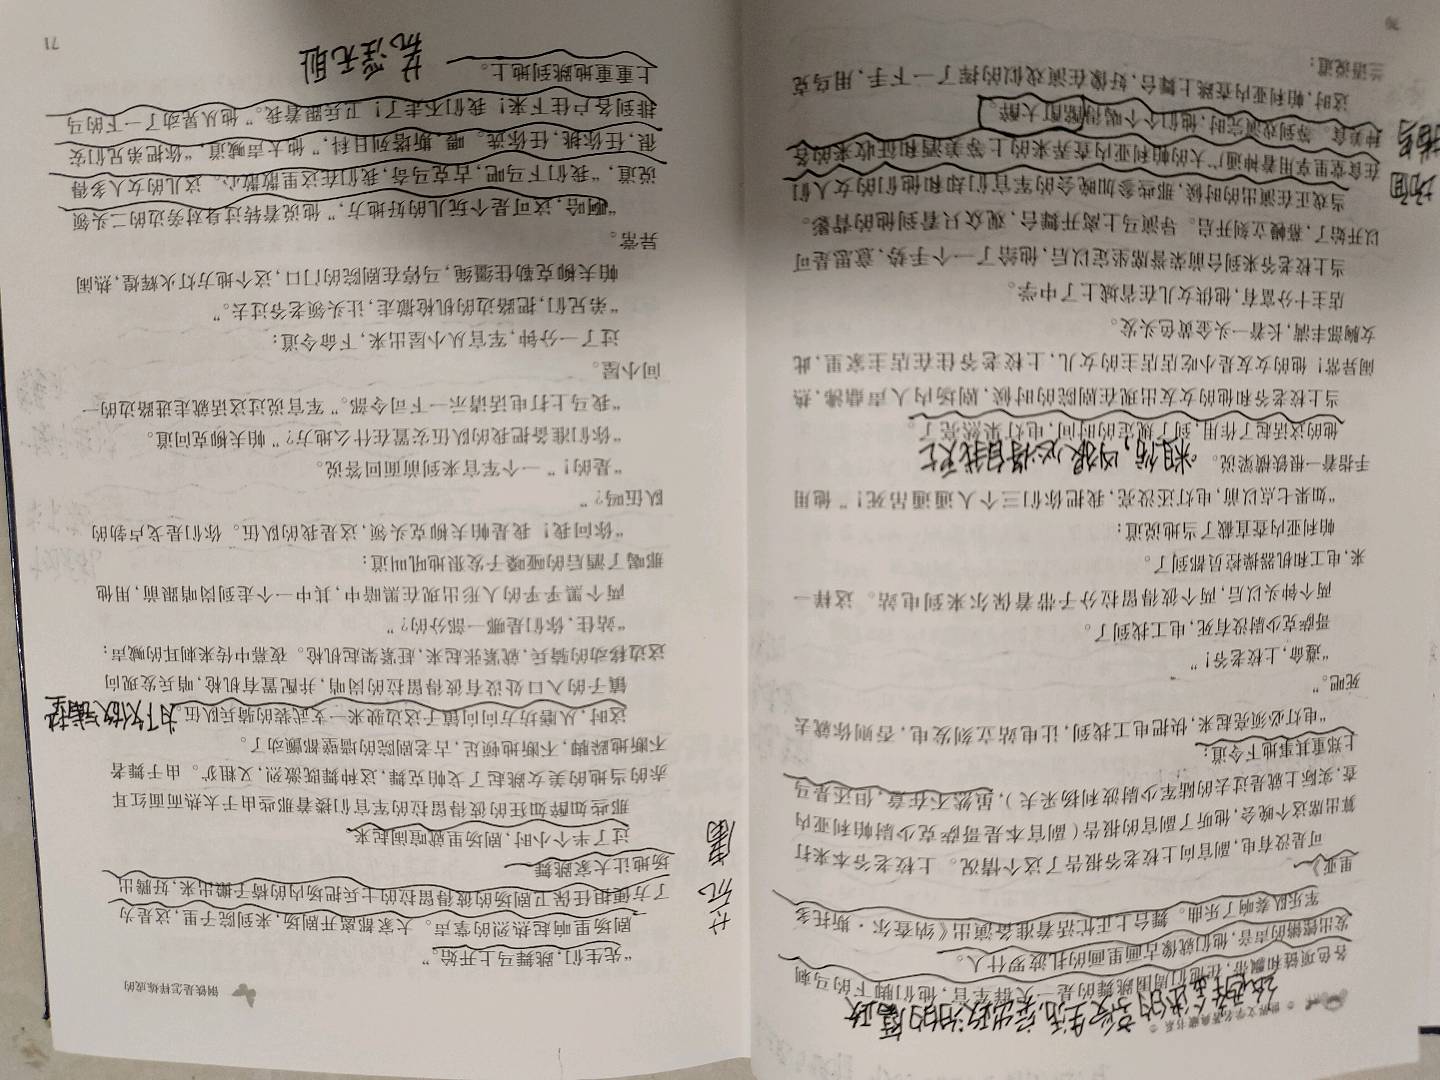 世界文学名著典藏书系
各色项链和飘带,在他们周围跳舞的是一大群军官,他们脚下的马刺
发出锵锵的声音,他们就像古画里画的扎波罗什人。
军乐队奏响了乐曲。舞台上正忙活着准备演出《纳查尔·斯托多
里亚》。
可是没有电,副官向上校老爷报告了这个情况。上校老爷本来打
算出席这个晚会,他听了副官的报告(副官本是哥萨克少尉帕利亚内
查,实际上就是过去的陆军少尉波利扬采夫),虽然不在意,但还是马
上郑重其事地下令道:
“电灯必须亮起来,快把电工找到,让电站立刻发电,否则你就去
死吧。”
“遵命,上校老爷!”
哥萨克少尉没有死,电工找到了。
两个钟头以后,两个彼得留拉分子带着保尔来到电站。这样一
来,电工和机器操控员都到了。
帕利亚内查直截了当地说道:
“如果七点以前,电灯还没亮,我把你们三个人通通吊死!”他用
手指着一根铁横梁说。
粗俗,凶狠,必将自我灭亡
他的这话起了作用,到了规定的时间,电灯果然亮了。
当上校老爷和他的女友出现在剧院的时候,剧场内人声鼎沸,热
闹异常!他的女友是小吃店店主的女儿,上校老爷住在店主家里,此
女胸部丰满,长着一头金黄色头发。
店主十分富有,他供女儿在省城上了中学。
当上校老爷来到台前荣誉席坐定以后,他给了一个手势,意思是可
以开始了,幕幔立刻开启。导演马上离开舞台,观众只看到他的背影。
当戏正在演出的时候,那些参加晚会的军官们却和他们的女人们
在食堂里享用着神通广大的帕利亚内查弄来的上等美酒和征收来的各
种美食。等到戏演完时,他们个个喝得酩酊大醉。
这时,帕利亚内查跳上舞台,好像在演戏似的挥了一下手,用乌克
兰语说道:
70
钢铁是怎样炼成的
“先生们,跳舞马上开始。”
剧场里响起热烈的掌声。大家都离开剧场,来到院子里,这是为
了方便担任保卫剧场的彼得留拉的士兵把场内的椅子搬出来,好腾出
场地让大家跳舞
过了半个小时,剧场里就喧闹起来
那些如醉如狂的彼得留拉的军官们搂着那些由于太热而面红耳
赤的当地的美女跳起了戈帕克舞,这种舞既激烈,又粗犷。由于舞者
不断地踩脚,不断地顿足,古老剧院的墙壁都颤动了。
这时,从磨坊方向向镇子这边驶来一支武装的骑兵队伍。
为下文做铺垫
镇子的入口处设有彼得留拉的岗哨,并配置有机枪,哨兵发现向
这边移动的骑兵,就紧张起来,赶紧架起机枪。夜幕中传来刺耳的喊声:
“站住,你们是哪一部分的?”
两个黑乎乎的人形出现在黑暗中,其中一个走到岗哨跟前,用他
那喝了酒后的哑嗓子发狠地吼叫道:
“你问我!我是帕夫柳克头领,这是我的队伍。你们是戈卢勃的
队伍吗?”
“是的!”一个军官来到前面回答说。
“你们准备把我的队伍安置在什么地方?”帕夫柳克问道。
“我马上打电话请示一下司令部。”军官说过这话就走进路边的一
间小屋。
过了一分钟,军官从小屋出来,下命令道:
“弟兄们,把路边的机枪撤走,让头领老爷过去。”
帕夫柳克勒住缰绳,马停在剧院的门口,这个地方灯火辉煌,热闹
异常。
“啊哈,这可是个玩儿的好地方,”他说着转过身对旁边的二头领
说道,“我们下马吧,古克马奇,我们在这里散散心。这儿的女人多得
很,任你挑,任你选。喂,斯塔列日科,”他大声喊道,“你把弟兄们安
排到各户住下来!我们不走了!卫兵跟着我。”他从晃动了一下的马
上重重地跳到地上。
荒淫无耻
71